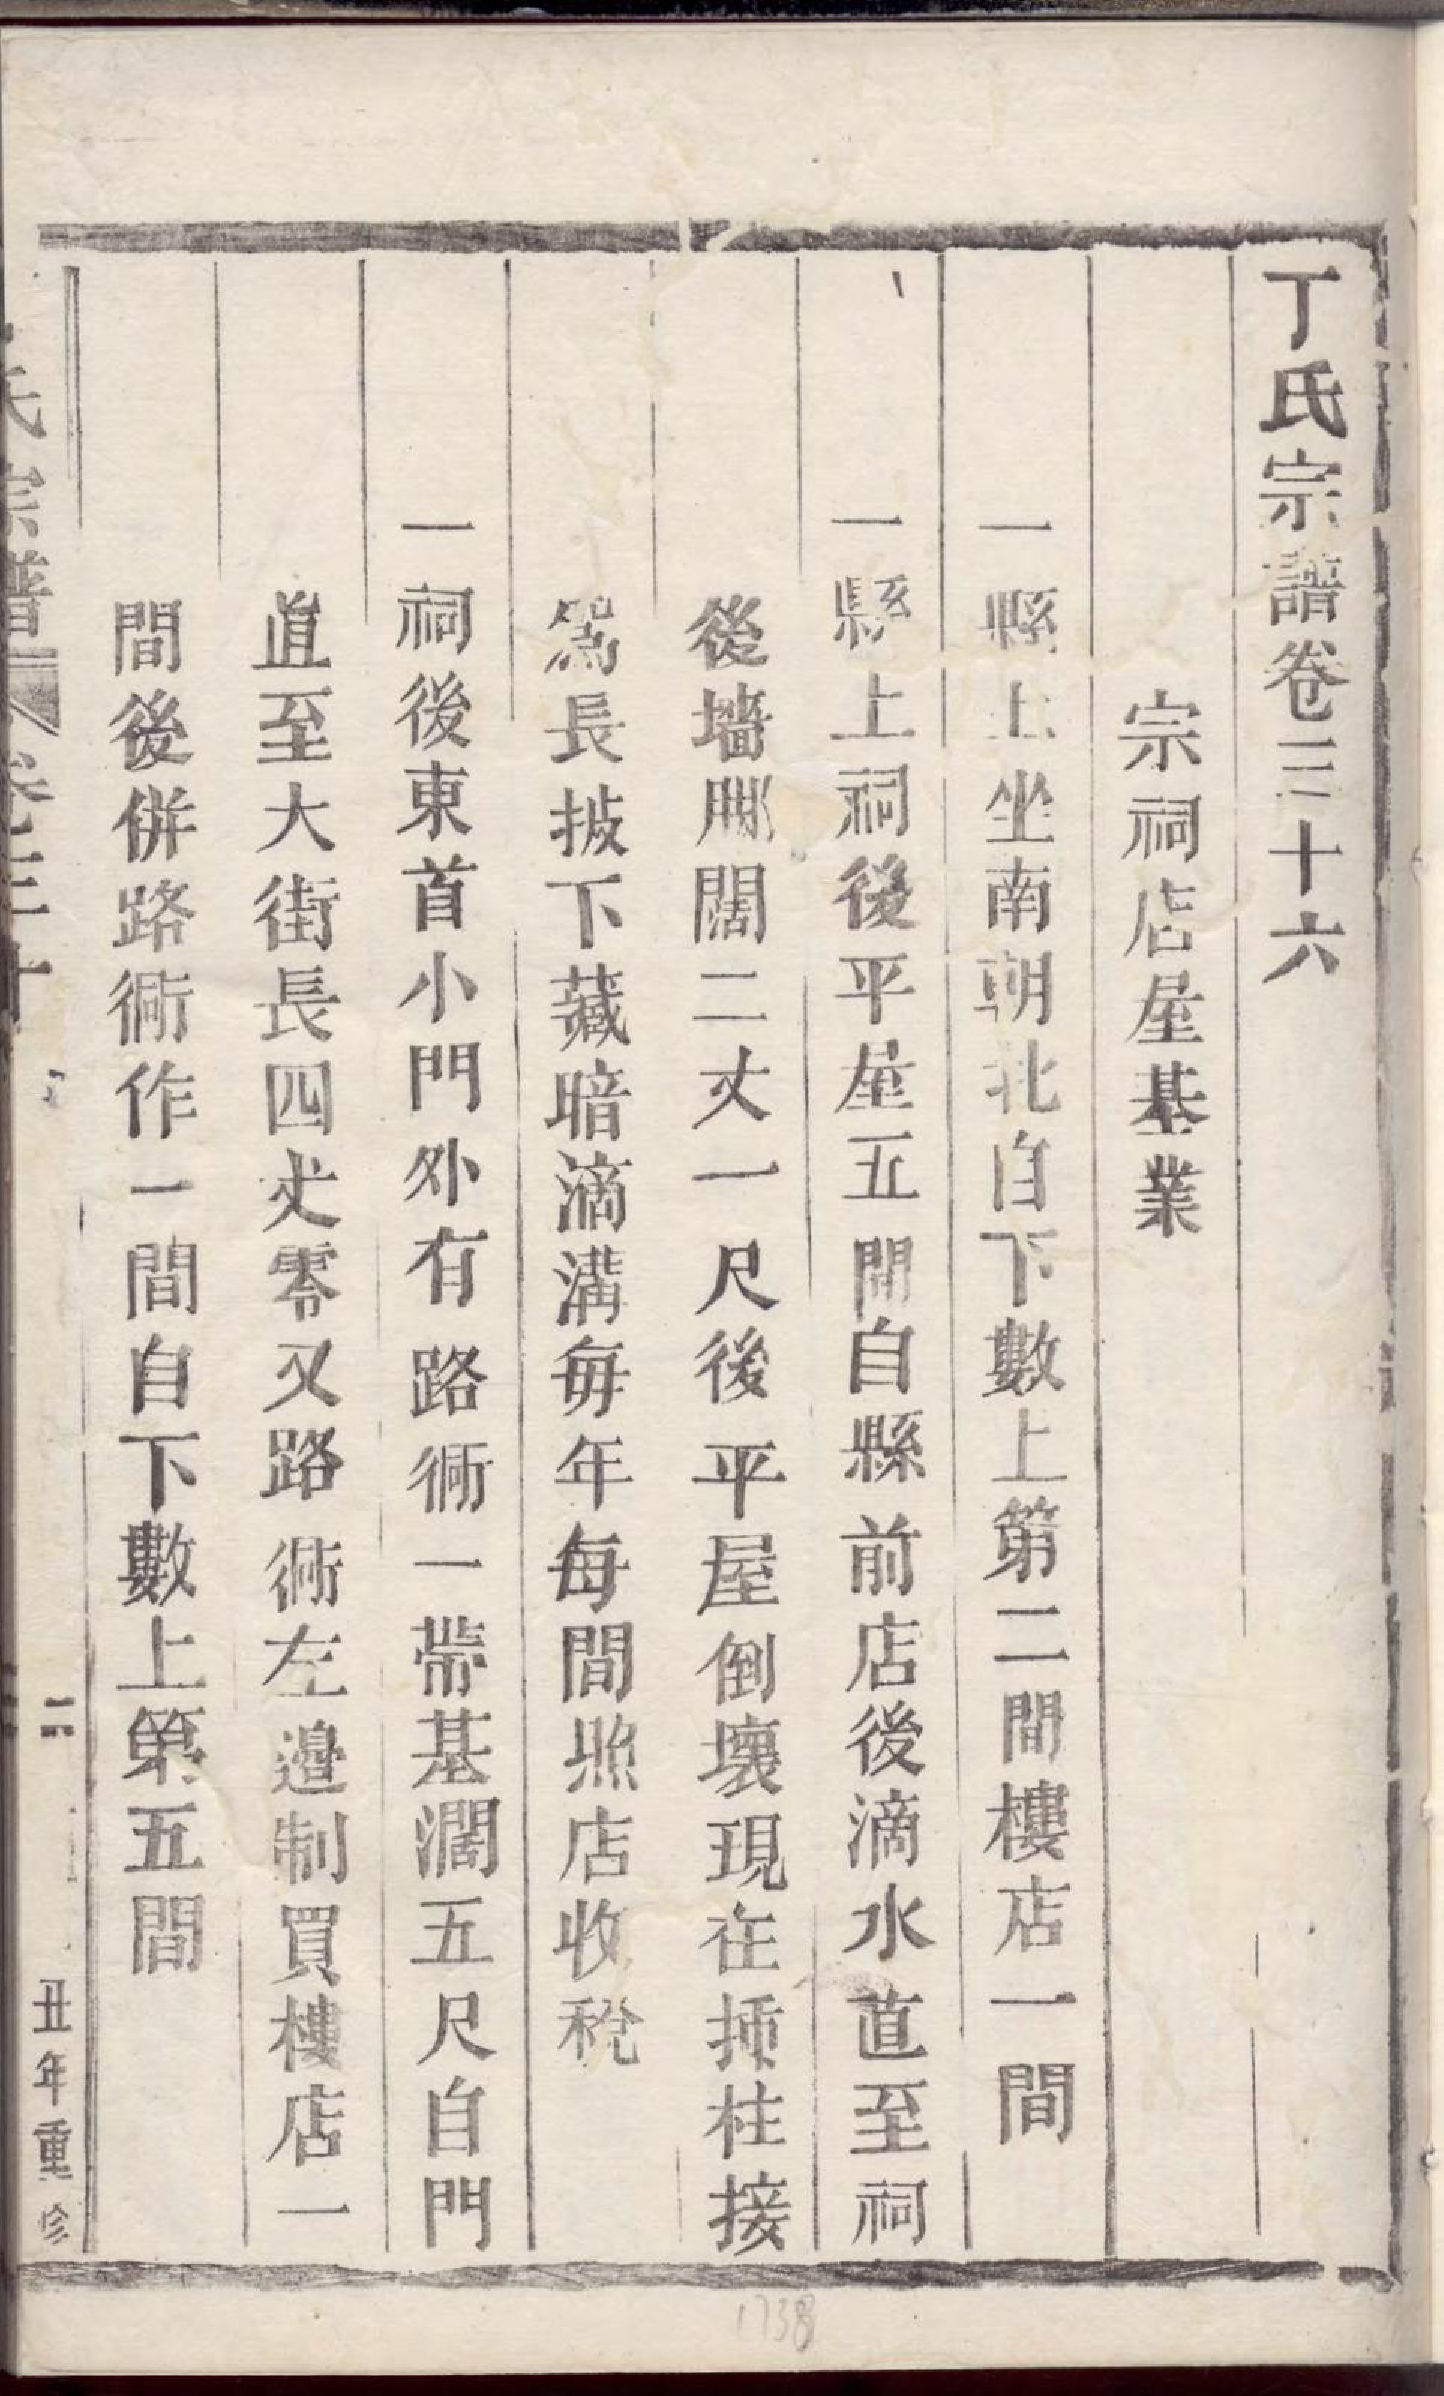 丁氏宗譜卷三十六
宗祠店屋基業
一縣上坐南朝北自下數上第二間樓店一間
一縣上祠後平屋五間自縣前店後滴水直至祠
後墻脚闊二丈一尺後平屋倒壞現在揷柱接
爲長披下藏暗滴溝每年每間照店收稅
一祠後東首小門外有路衕一帶基濶五尺自門
直至大街長四丈零又路衕左邉制買樓店一
間後併路衕作一間自下數上第五間
氏宗譜 卷三十
二
丑年重
1738